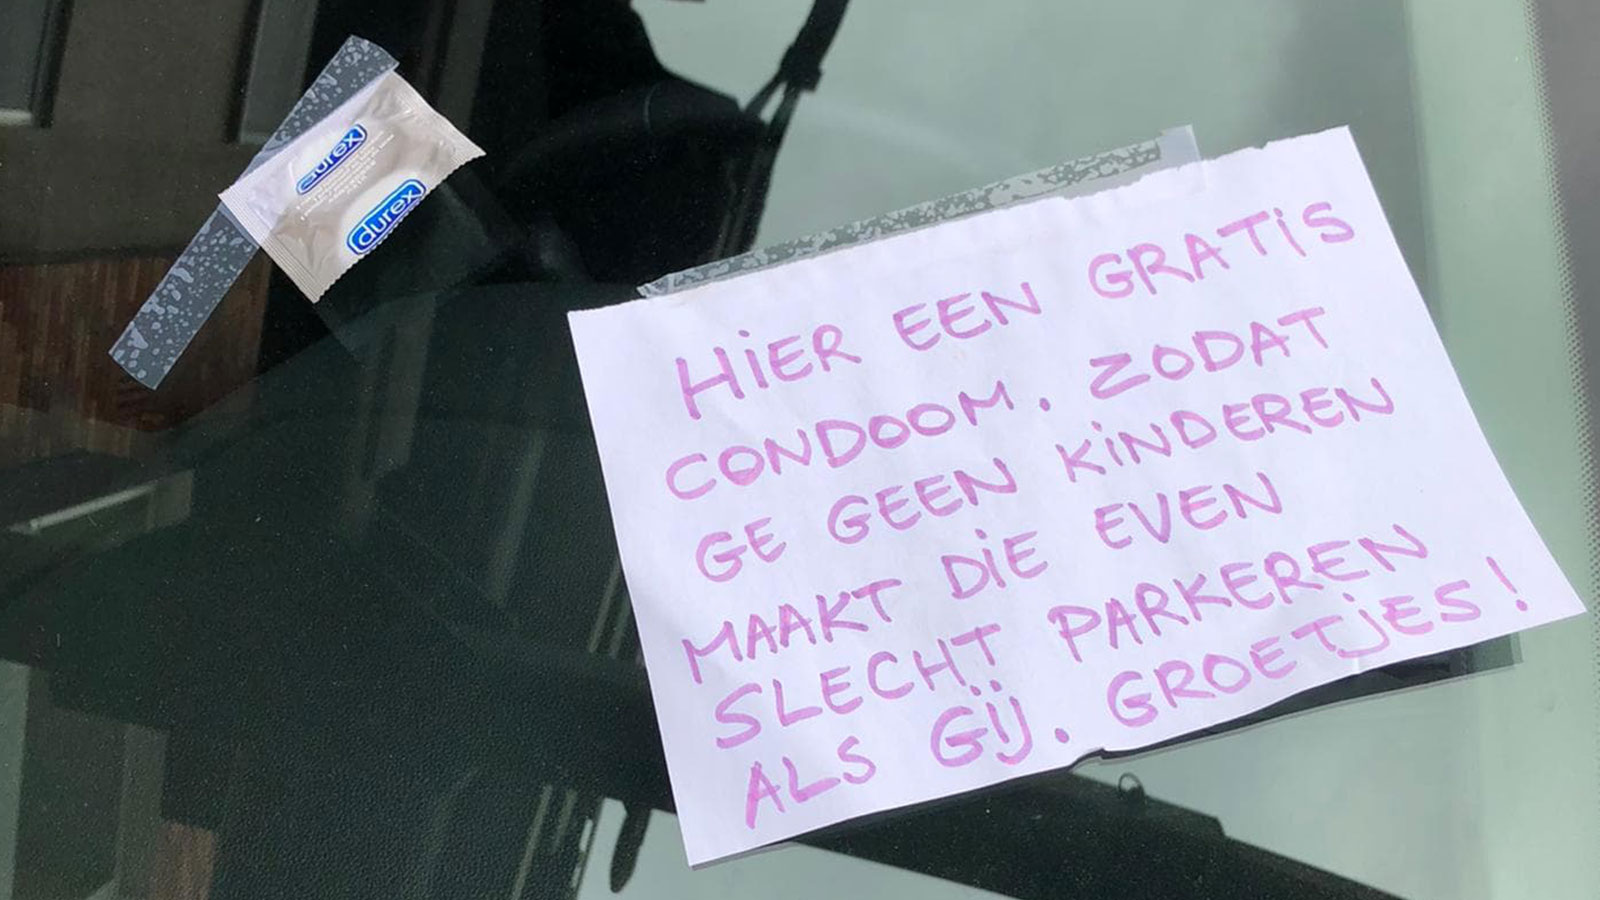 durex
durex
HiER EEN GRATiS
CONDOOM. ZODAT
GE GEEN KiNDEREN
MAAKT DiE EVEN
SLECHT PARKEREN
ALS Gij. GROETjES!